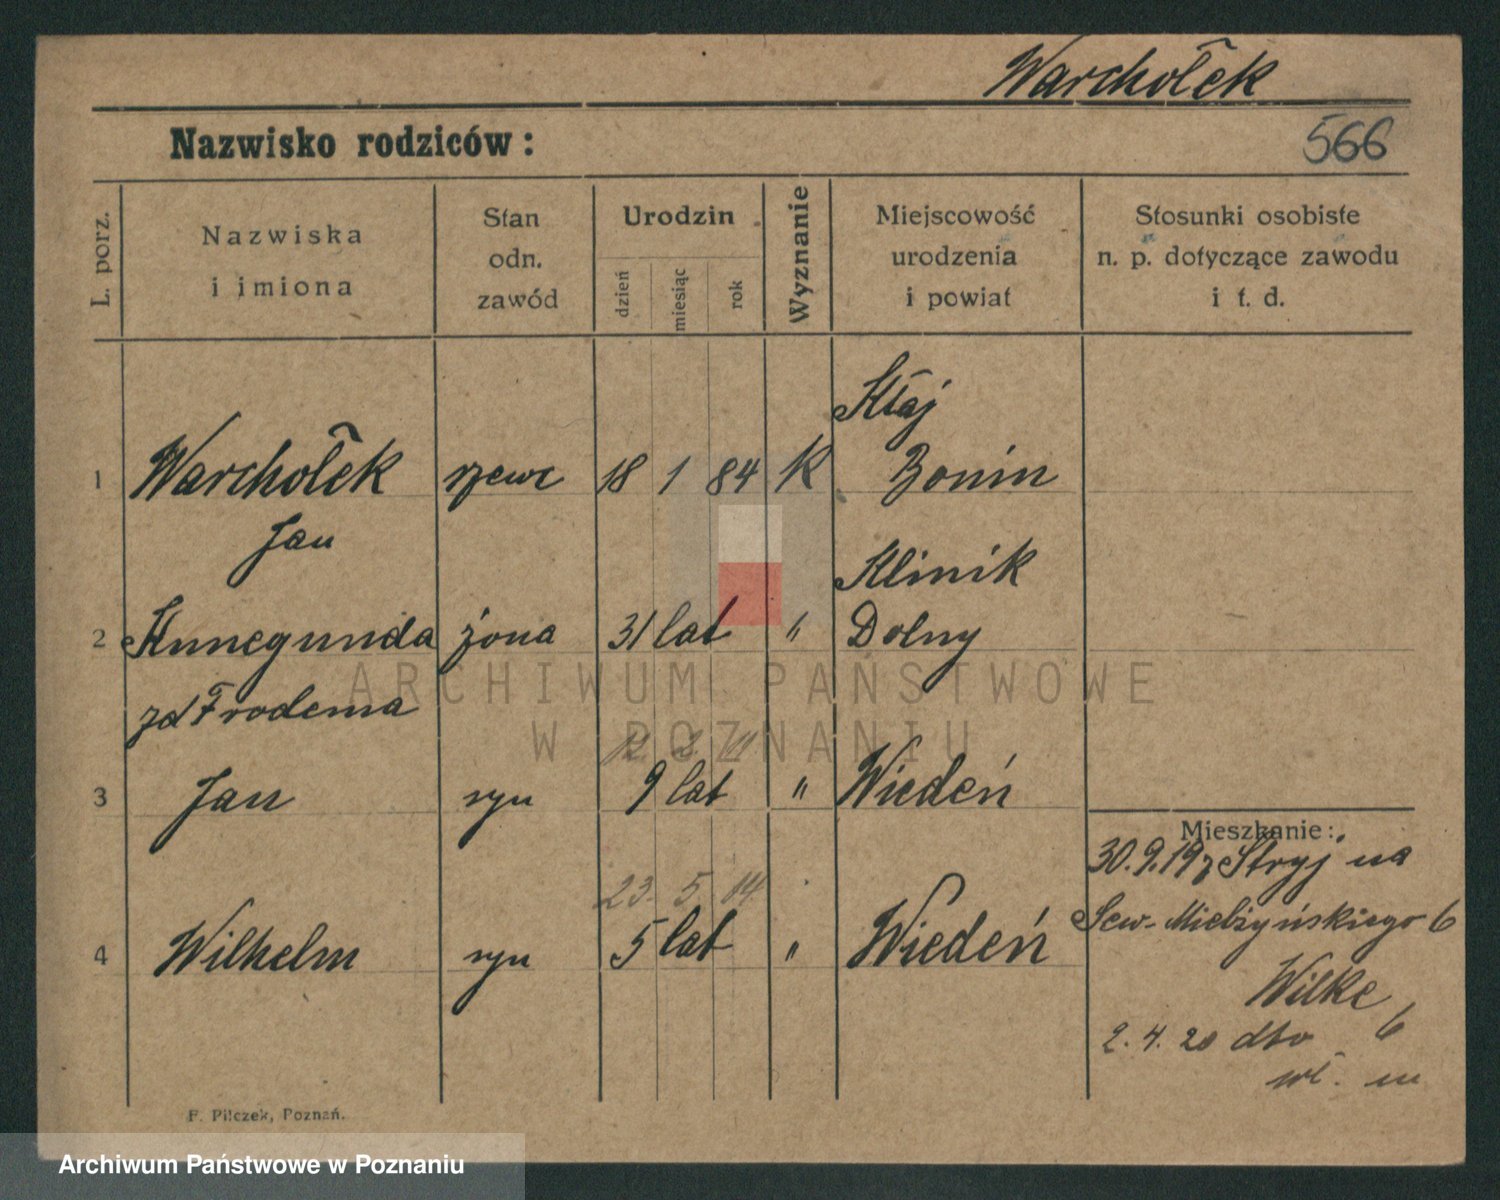 Warchołek
Nazwisko rodziców:
566
L. porz.
Nazwiska
i imiona
Stan
odn.
zawód
Urodzin
dzień
miesiąc
rok
Wyznanie
Miejscowość
urodzenia
i powiat
Stosunki osobiste
n. p. dotyczące zawodu
i t. d.
Kłaj
1 Warchołek szewc 18 1 84 K Bonin
Jan
Klinik
2 Kunegunda żona 31 lat " Dolny
zd Frodema
3 Jan syn 9 lat " Wiedeń
Mieszkanie:
30.9.19 z Stryj na
23. 5. 14
Sew. Mielżyńskiego 6
4 Wilhelm syn 5 lat " Wiedeń
Wilke
2. 4. 20 dto 6
wł. m
F. Pilczek, Poznań.
ARCHIWUM PAŃSTWOWE
W POZNANIU
Archiwum Państwowe w Poznaniu